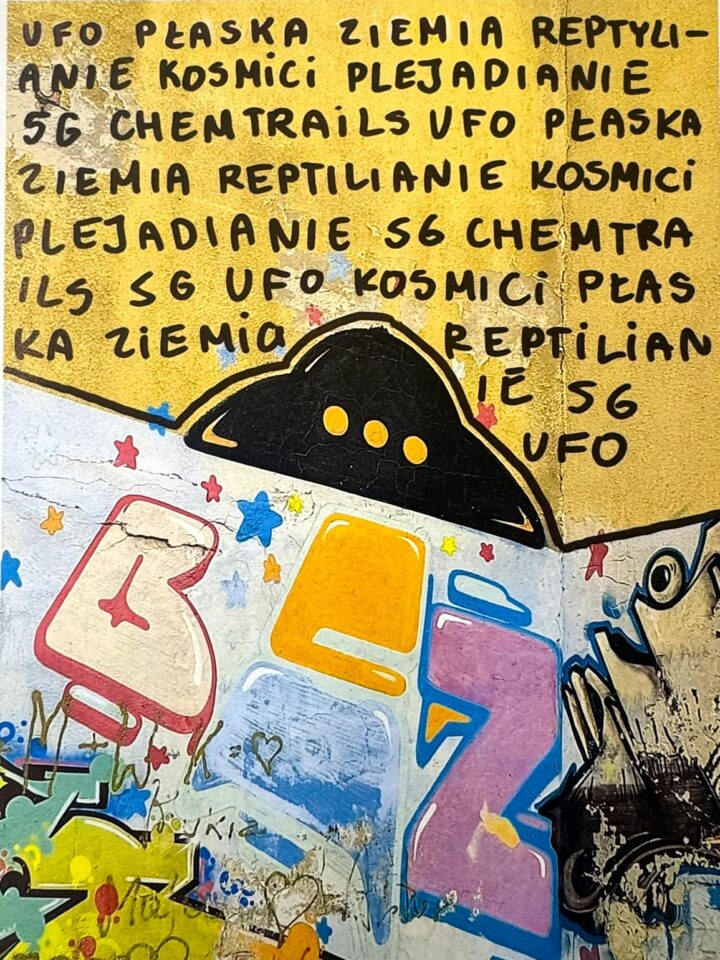 UFO PŁASKA ZIEMIA REPTYLI-
ANIE KOSMICI PLEJADIANIE
5G CHEMTRAILS UFO PŁASKA
ZIEMIA REPTILIANIE KOSMICI
PLEJADIANIE 5G CHEMTRA
ILS 5G UFO KOSMICI PŁAS
KA ZIEMIA REPTILIAN
IE 5G
UFO
M + W K = ♡